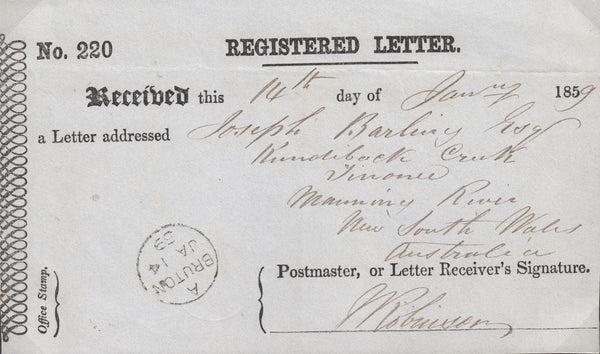 No. 220
REGISTERED LETTER.
Received this 14th day of Jany 1859
a Letter addressed Joseph Barling Esq
Kundiback Creek
Tinonee
Manning River
New South Wales
Australia
A
BRUTON
JA 14
59
Office Stamp.
Postmaster, or Letter Receiver's Signature.
Robinson